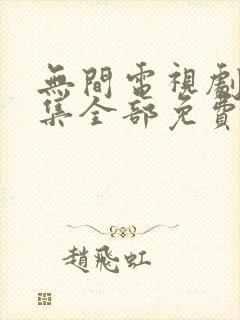 無間電視劇
集全部免費
趙飛虹